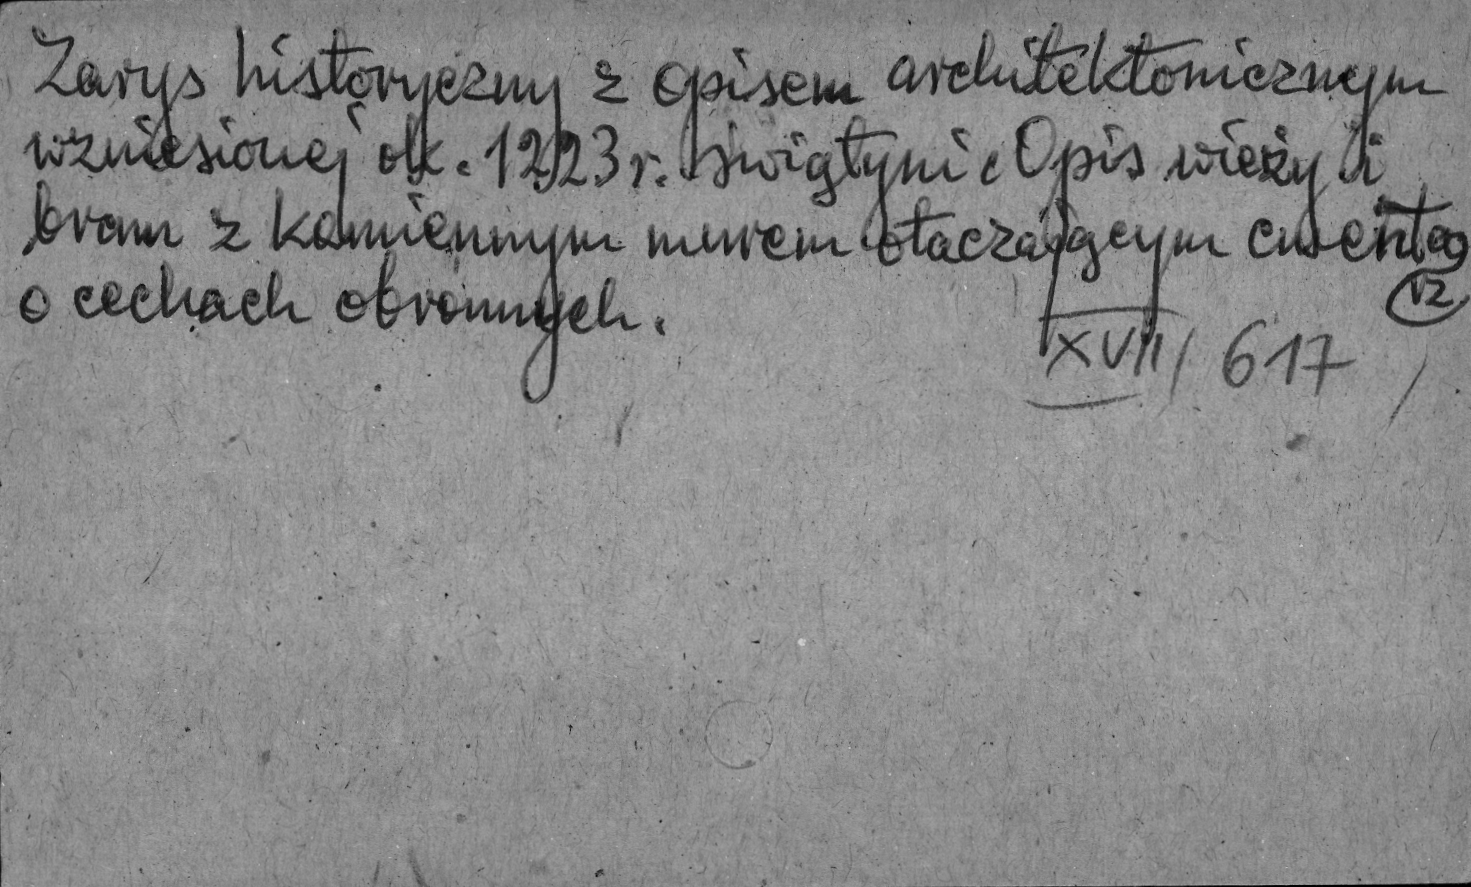 Zarys historyczny z opisem architektonicznym
wzniesionej ok. 1223 r. świątyni. Opis wieży i
bram z kamiennym murem otaczającym cmentarz
o cechach obronnych.
XVII/617